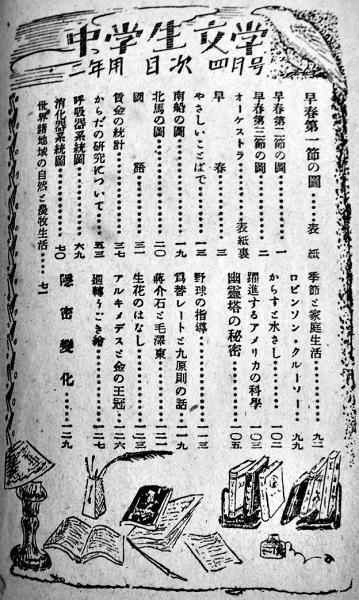 中学生文学
二年用 目次 四月号
早春第一節の圖………表紙
早春第二節の圖………一
早春第三節の圖………二
オーケストラ………表紙裏
早春………三
やさしいことばで………一三
南船の圖………一九
北馬の圖………二〇
國語………三一
賃金の統計………三七
からだの研究について………五三
呼吸器系統圖………六九
消化器系統圖………七〇
世界諸地域の自然と農牧生活………七一
季節と家庭生活………九二
ロビンソン・クルーソー………九九
からすと水さし………一〇二
躍進するアメリカの科學………一〇三
幽靈塔の秘密………一〇五
野球の指導………一一三
爲替レートと九原則の話………一一九
蔣介石と毛澤東………一二一
生花のはなし………一二三
アルキメデスと金の王冠………一二六
廻轉うごき繪………一二七
隱密變化………一二九